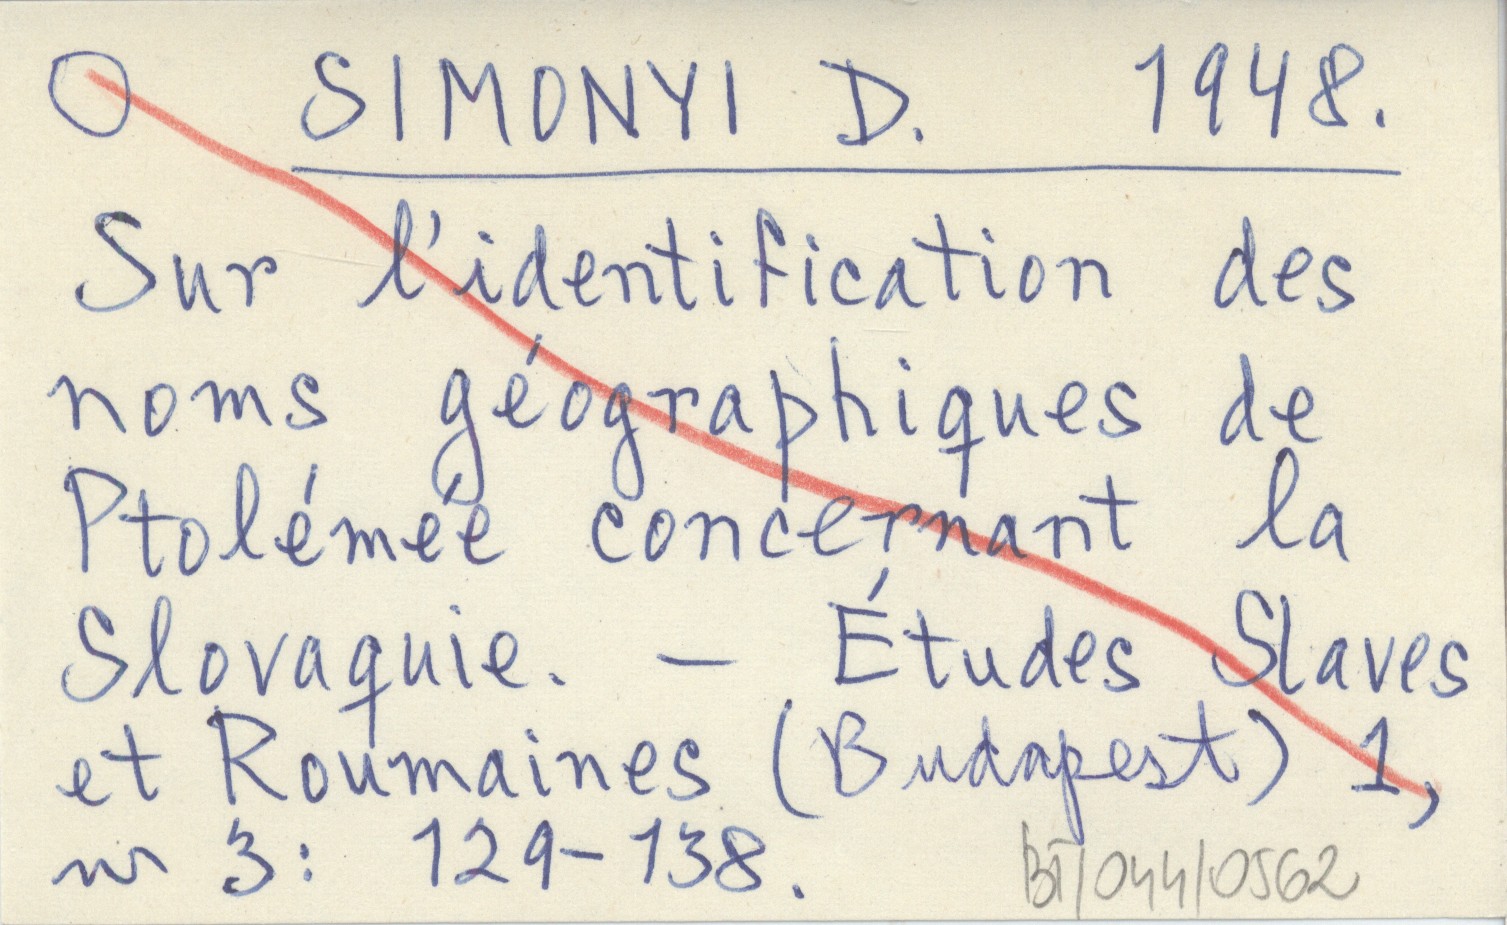 SIMONYI D. 1948.
Sur l'identification des
noms géographiques de
Ptolémée concernant la
Slovaquie. — Études Slaves
et Roumaines (Budapest) 1,
nr 3: 129-138.
BT/044/0562